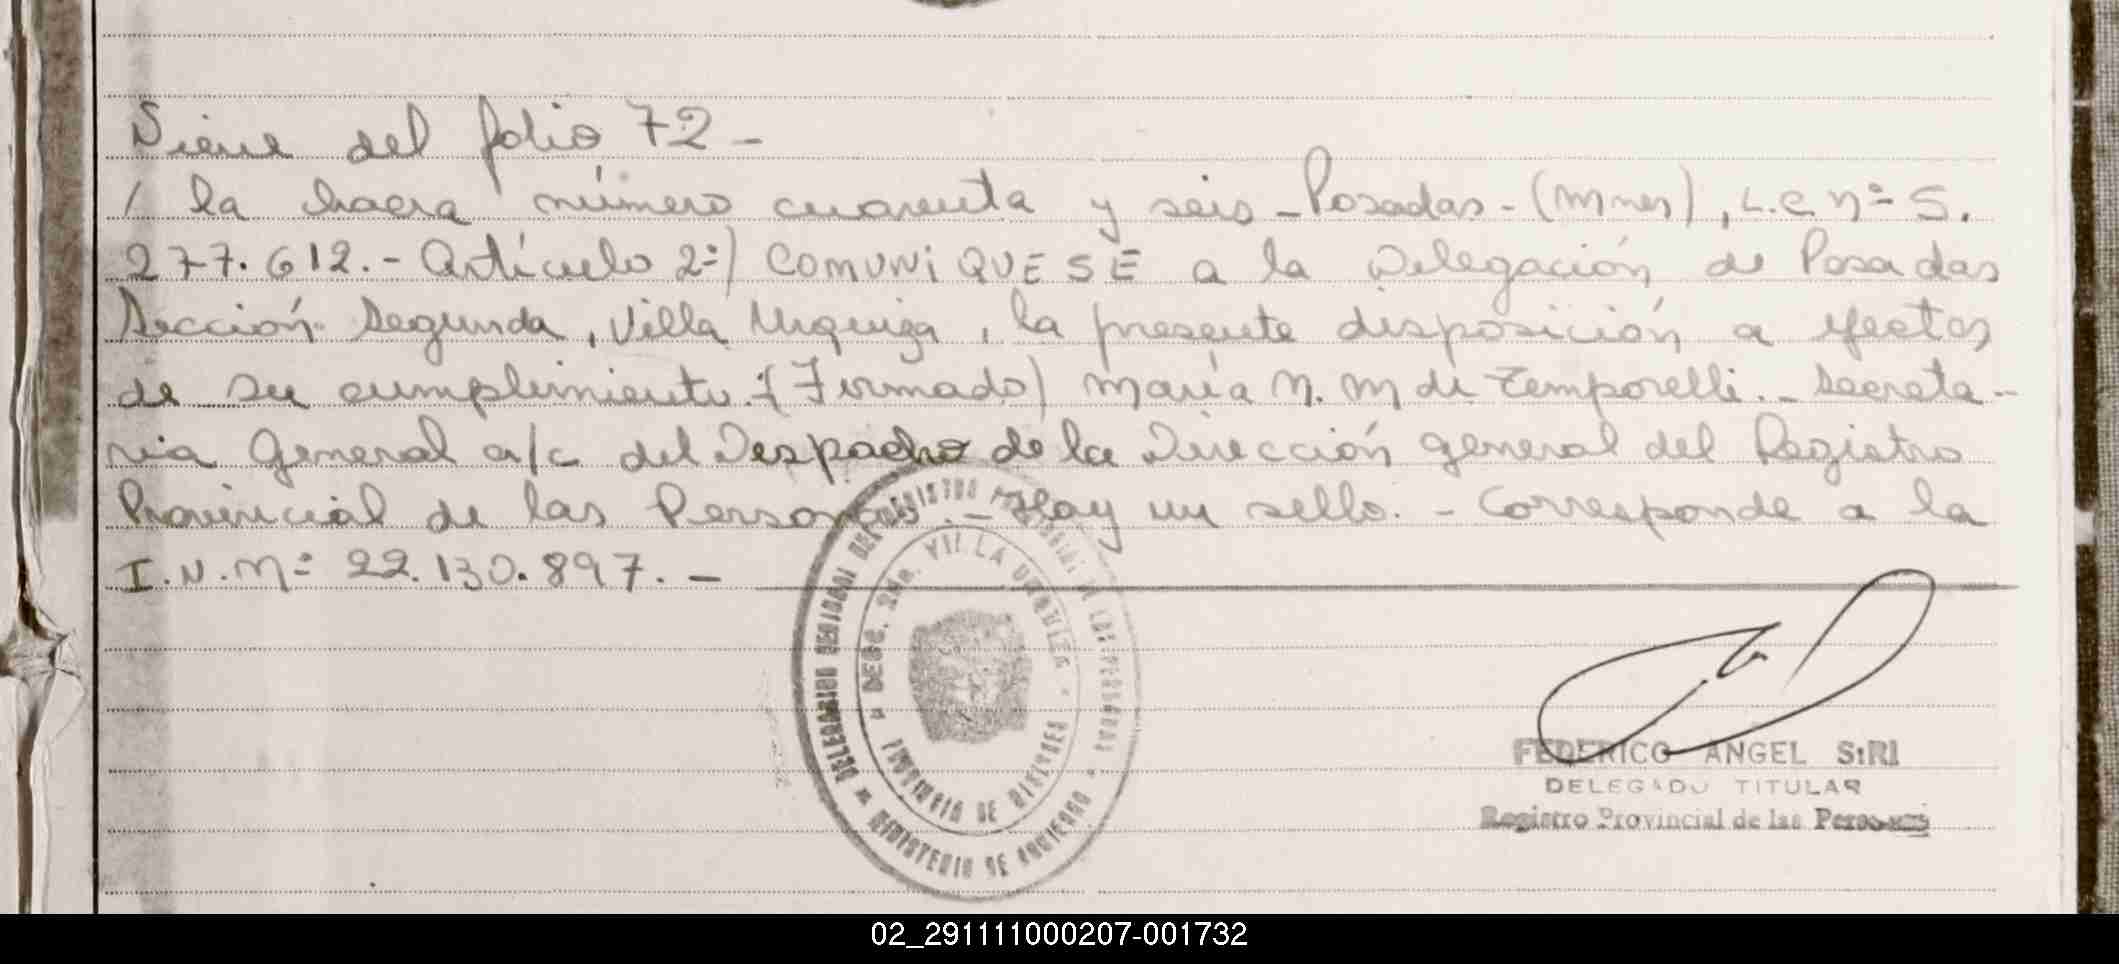 Viene del folio 72-
/ la chacra número cuarenta y seis - Posadas - (Mnes), L.C nº 5.
277.612.- Artículo 2º) COMUNIQUESE a la Delegación de Posadas
Sección Segunda, Villa Urquiza, la presente disposición a efectos
de su cumplimiento.-(Firmado) María N. M de Temporelli.- Secreta-
ria General a/c del Despacho de la Dirección general del Registro
Provincial de las Personas.- Hay un sello. - Corresponde a la
I.N.Mº 22.130.897. -
DELEGACION REGIONAL DEL REGISTRO PROVINCIAL DE LAS PERSONAS
* MINISTERIO DE GOBIERNO *
SECC. 2da. VILLA URQUIZA
PROVINCIA DE MISIONES
FEDERICO ANGEL SIRI
DELEGADO TITULAR
Registro Provincial de las Personas
02_291111000207-001732